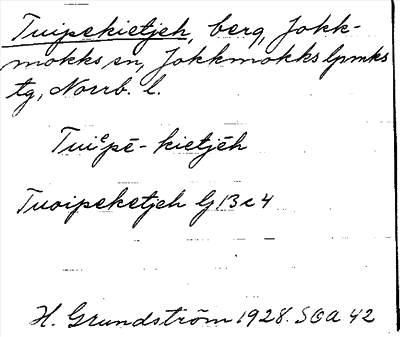 Tuipekietjeh, berg, Jokk-
mokks sn, Jokkmokks lpmks
tg, Norrb. l.
Tuiᵉpē-kietjēh
Tuoipeketjeh Gj 13 c 4
H. Grundström 1928. SOA 42